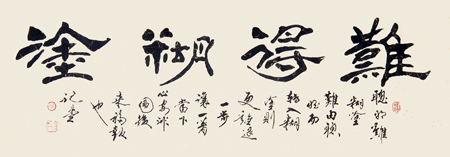 難得糊塗
聰明難
糊塗
難由聰
明而
轉入糊
塗則
更難退
一步
讓一著
當下
心安非
圖後
來福報
也